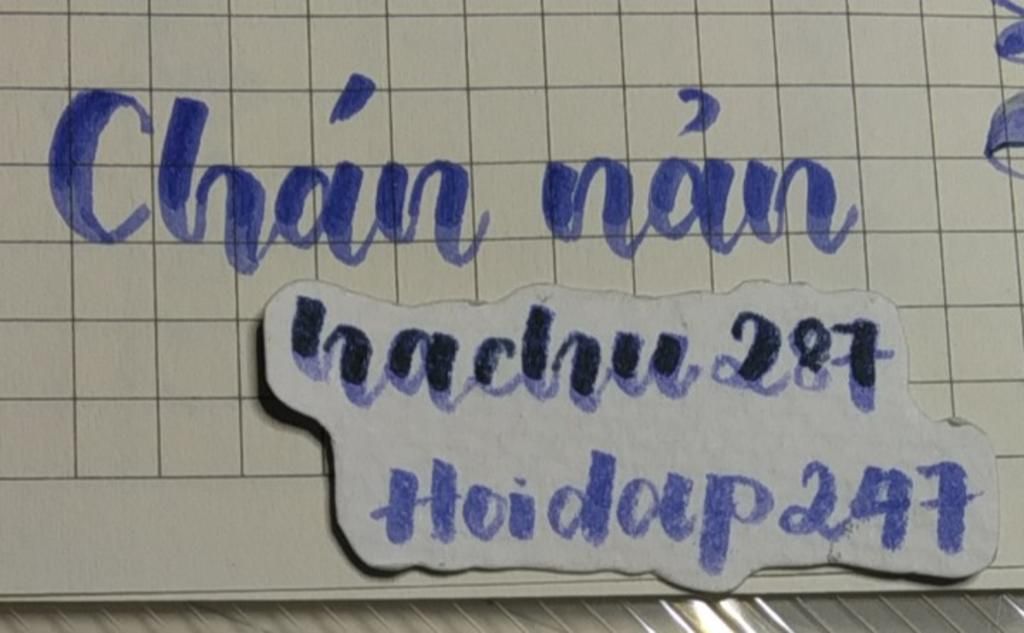 Chán nản
hachu287
Hoidap247